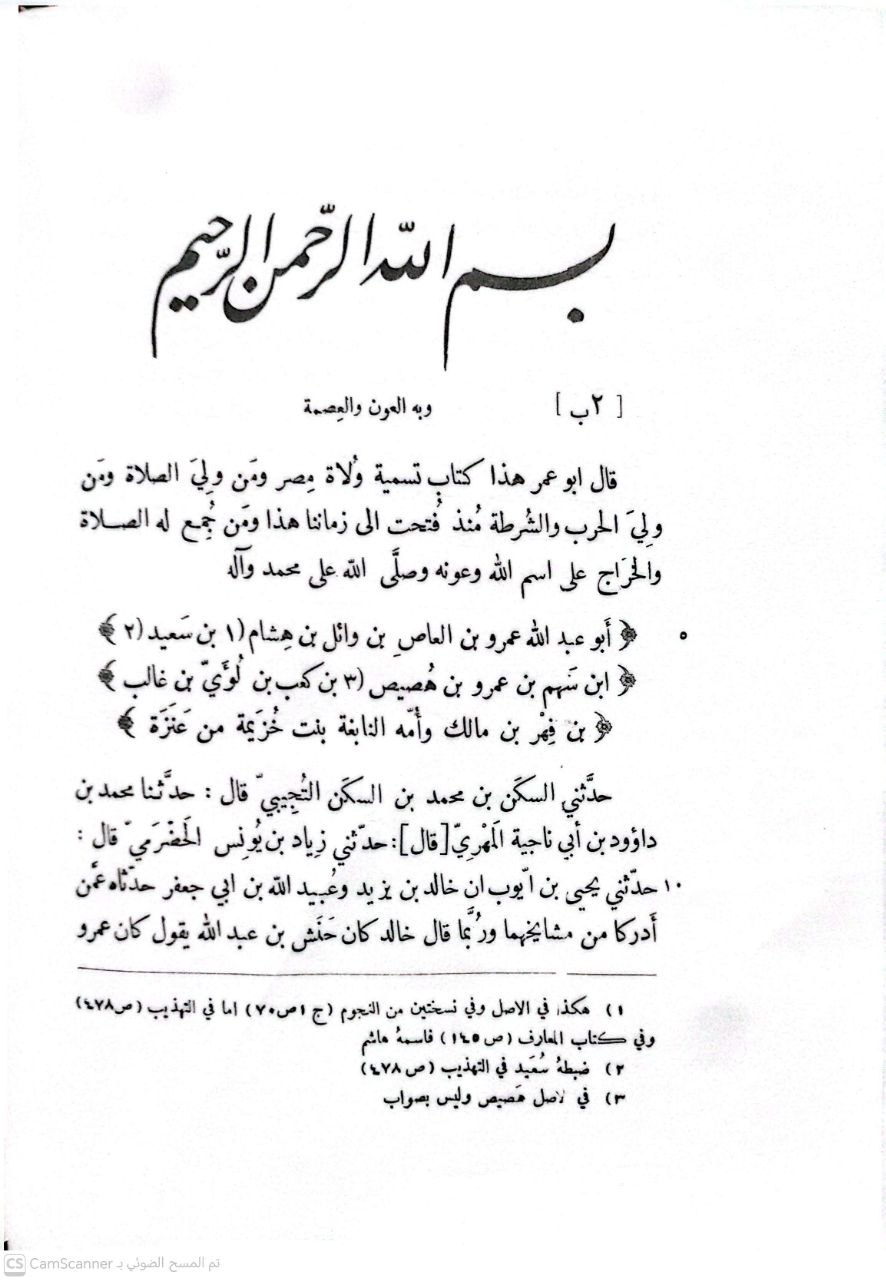 بسم الله الرحمن الرحيم
[ ٢ب ] وبه العون والعِصمة
قال ابو عمر هذا كتاب تسمية وُلاة مِصر ومَن ولِيَ الصلاة ومَن
ولِيَ الحرب والشُرطة مُنذ فُتحت الى زماننا هذا ومَن جُمِع له الصلاة
والخَراج على اسم الله وعونه وصلَّى الله على محمد وآله
٥ ﴿ أَبو عبد الله عمرو بن العاص بن وائل بن هِشام(١ بن سَعيد(٢ ﴾
﴿ ابن سَهم بن عمرو بن هُصيص(٣ بن كعب بن لُؤَيّ بن غالب ﴾
﴿ بن فِهْر بن مالك وأُمّه النابغة بنت خُزَيمة من عَنَزَة ﴾
حدَّثني السكَن بن محمد بن السكَن التُجِيبيّ قال : حدَّثنا محمد بن
داؤود بن أبي ناجية المَهْريّ [قال]: حدّثني زِياد بن يُونِس الحَضْرَميّ قال :
١٠ حدّثني يحيى بن ايّوب ان خالد بن يزيد وعُبيد الله بن ابي جعفر حدّثاه عمَّن
أَدركا من مشايخهما ورُبَّما قال خالد كان حَنَش بن عبد الله يقول كان عمرو
١) هكذا في الاصل وفي نسختين من النجوم (ج ١ص٧٠) اما في التهذيب (ص٤٧٨)
وفي كتاب المعارف (ص١٤٥) فاسمهُ هاشم
٢) ضبطهُ سُعَيد في التهذيب (ص٤٧٨)
٣) في لاصل هَصيص وليس بصواب
CS CamScanner تم المسح الضوئي بـ